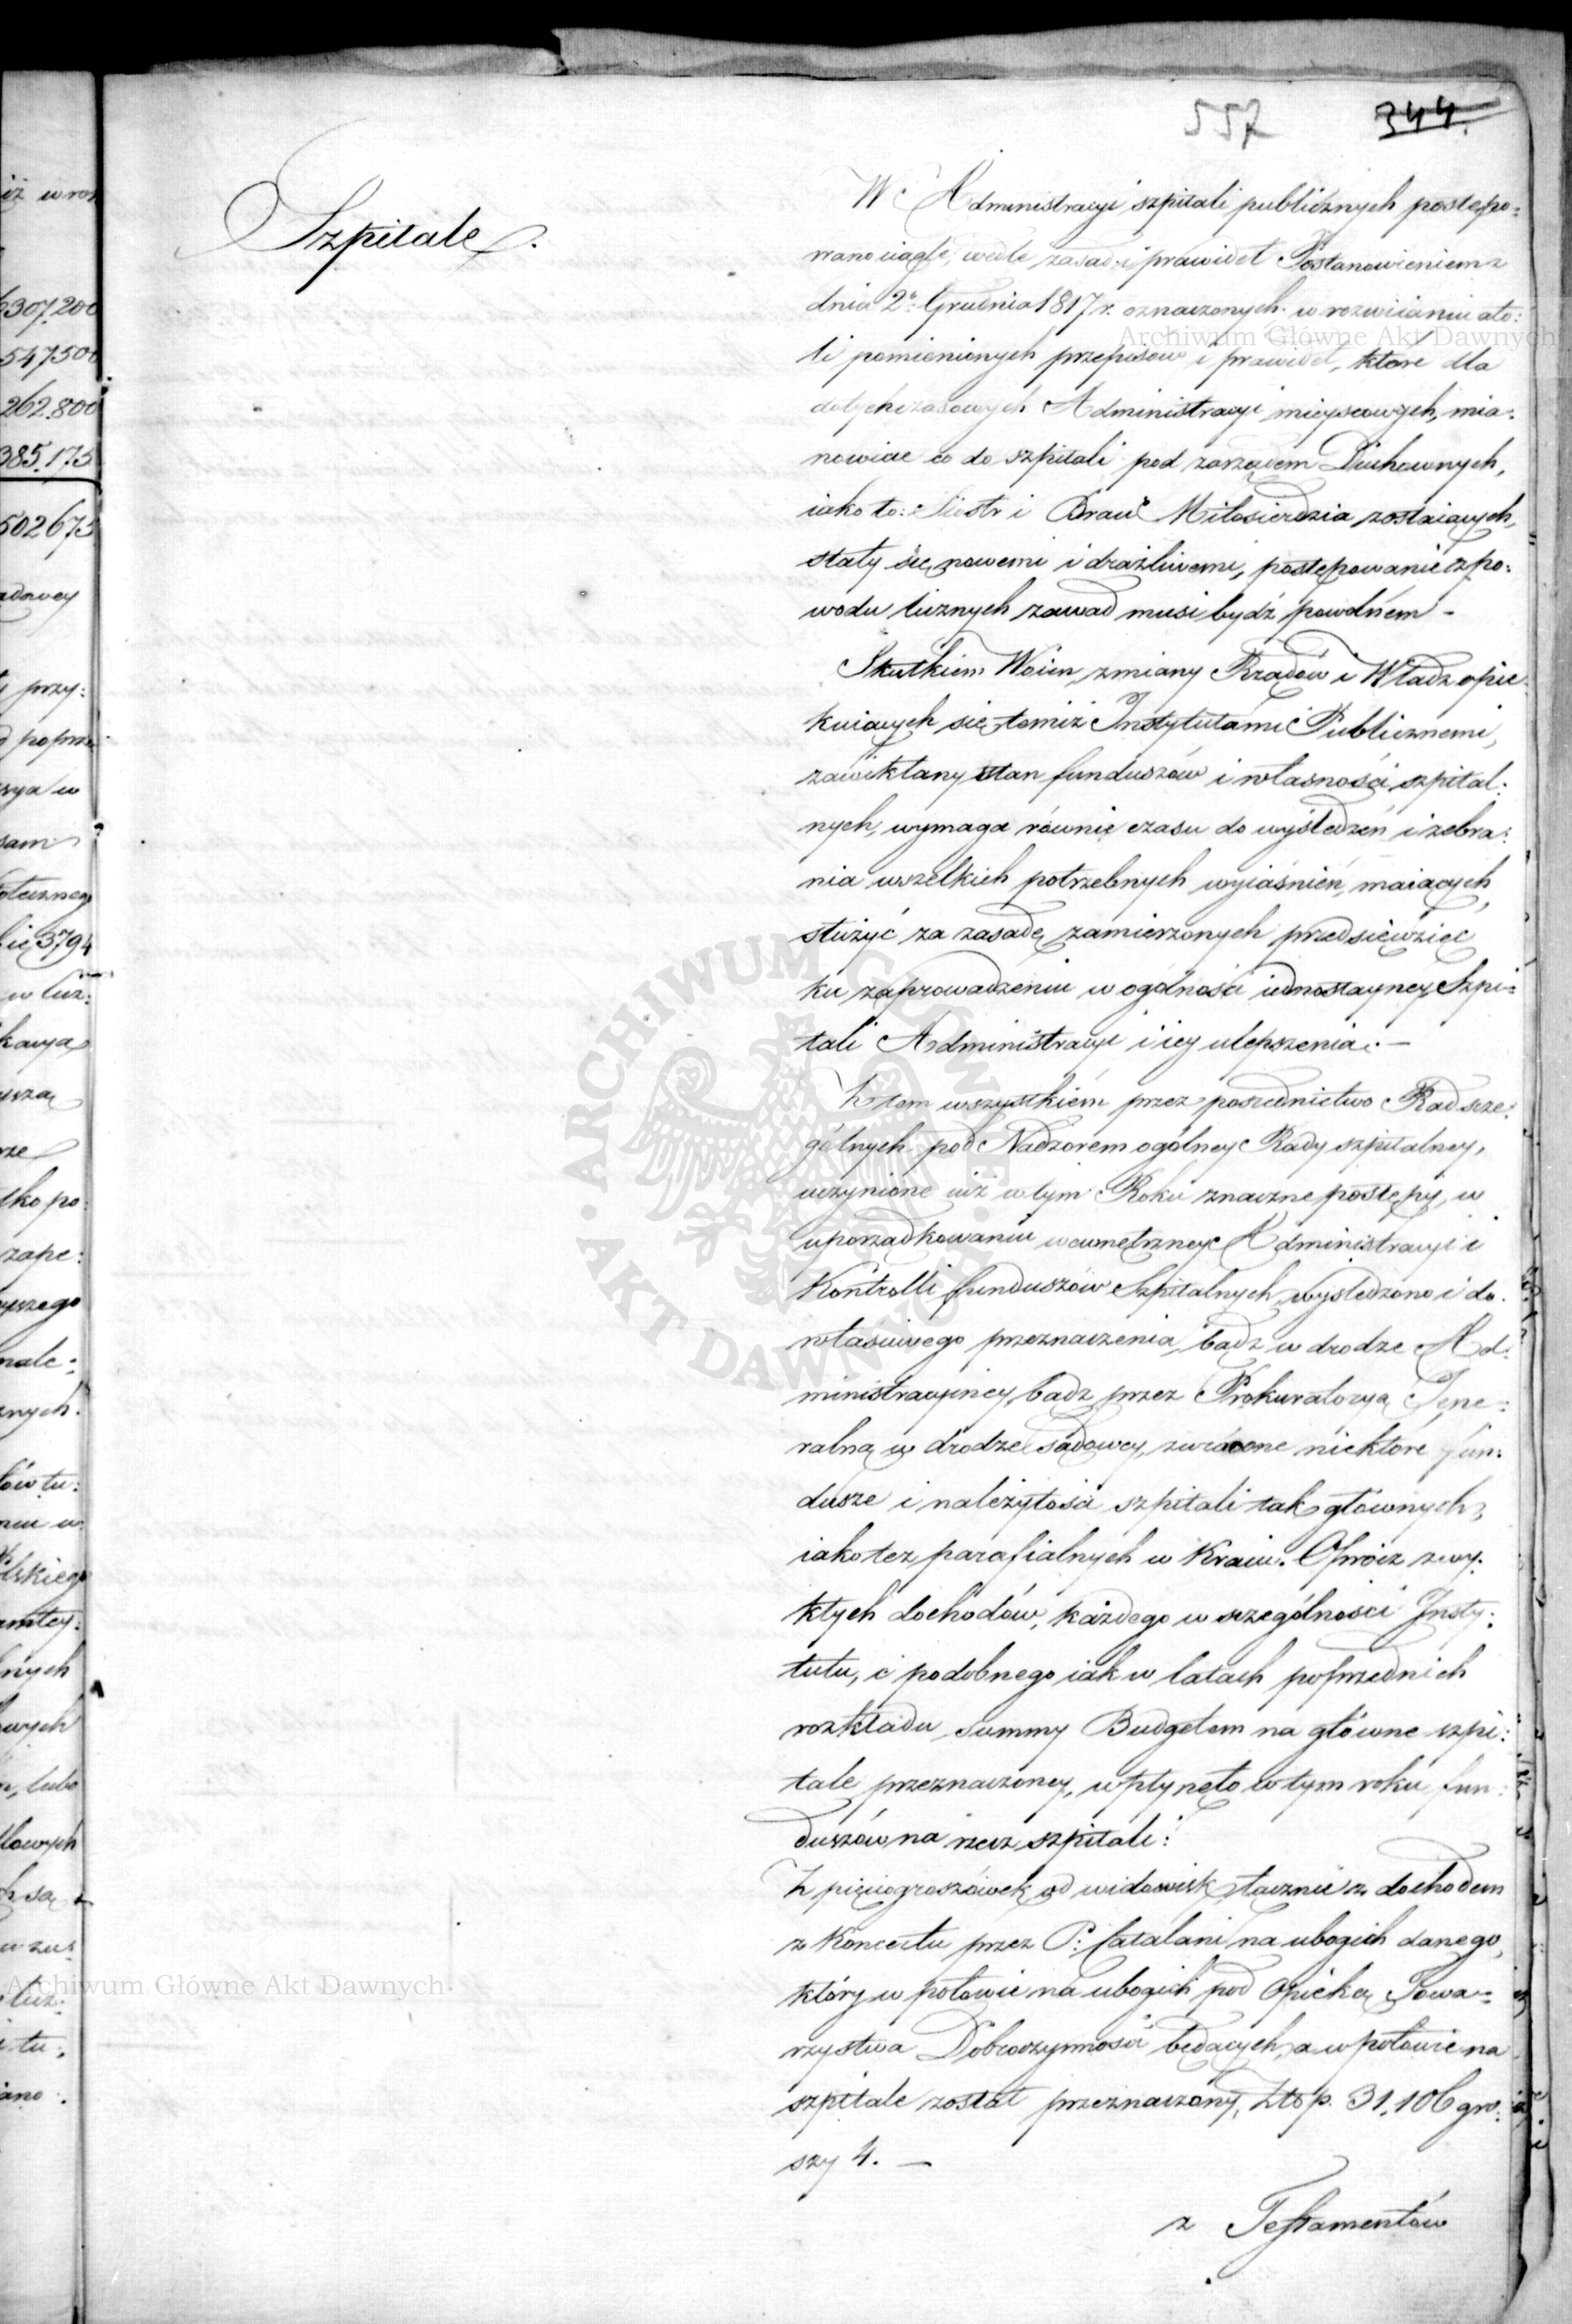 557 344.
Szpitale.
W Administracyi szpitali publicznych postępo:
wano ciągle, wedle zasad i prawideł Postanowieniem z
dnia 2º Grudnia 1817 r. oznaczonych. w rozwiianiu ato:
li pomienionych przepisow i prawideł, ktore dla
dotychczasowych Administracyi mieyscowych, mia:
nowicie co do szpitali pod zarządem Duchownych,
iako to: Siostr i Braci Miłosierdzia zostaiących,
stały się nowemi i drażliwemi, postępowanie z po:
wodu licznych zawad musi bydź powolnem -
Skutkiem Woien, zmiany Rządów i Władz opie
kuiących się temiż Instytutami Publicznemi,
zawikłany stan funduszów i własności szpital:
nych, wymaga równie czasu do wyśledzeń i zebra:
nia wszelkich potrzebnych wyiaśnień, maiących
służyć za zasadę zamierzonych przedsięwzięć
ku zaprowadzeniu w ogólności iednostayney Szpi=
tali Administracyi i iey ulepszenia. —
Z tem wszystkiém przez posrednictwo Rad szcze:
gólnych pod Nadzorem ogólney Rady szpitalney,
uczynione iuż w tym Roku znaczne postępy, w
uporządkowaniu wewnętrzney Administracyi i
Kontrolli funduszów Szpitalnych, wyśledzono i do
właściwego przeznaczenia, bądz w drodze Ad:
ministracyiney, bądz przez Prokuratoryą Jene:
ralną w drodze sądowey, zwrócone niektóre fun:
dusze i należytości szpitali tak głównych,
iako tez parafialnych w Kraiu. Oprócz zwy:
kłych dochodów, każdego w szczególności Insty:
tutu, i podobnego iak w latach poprzednich
rozkładu summy Budgetem na główne szpi:
tale przeznaczoney, wpłynęło w tym roku fun:
duszów na rzecz szpitali:
Z pięciogroszówek od widowisk, łącznie z dochodem
z Koncertu przez P: Catalani na ubogich danego,
który w połowie na ubogich pod Opieką Towa=
rzystwa Dobroczynności będących, a w połowie na
szpitale został przeznaczony, Złp. 31,106 gro:
szy 4. —
z Testamentów
iż w roz
307.200
547500
262.800
385.175
502675
przy:
w
3794
w licz:
po:
zape:
nych
lubo
Archiwum Główne Akt Dawnych
Archiwum Główne Akt Dawnych
ARCHIWUM GŁÓWNE AKT DAWNYCH